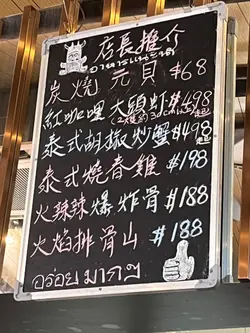 店長推介
อาหารแนะนำ
炭燒元貝 $68
紅咖喱大頭蝦 $498起
泰式胡椒炒蟹 $498起
泰式燒春雞 $198
火辣辣爆炸骨 $188
火焰排骨山 $188
อร่อยมากๆ